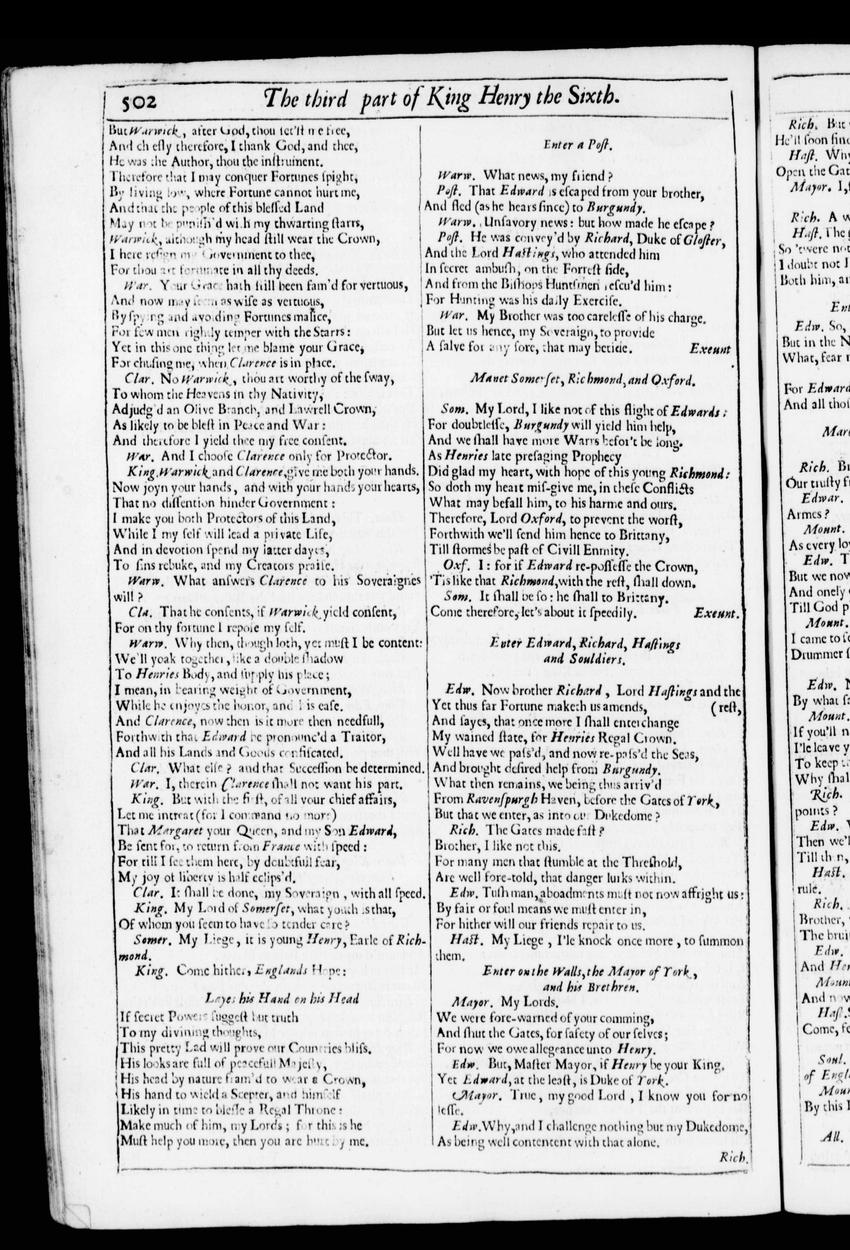 502
The third part of King Henry the Sixth.
But Warwick, after God, thou set'st me free,
And chiefly therefore, I thank God, and thee,
He was the Author, thou the instrument.
Therefore that I may conquer Fortunes spight,
By living low, where Fortune cannot hurt me,
And that the people of this blessed Land
May not be punish'd with my thwarting starrs,
Warwick, although my head still wear the Crown,
I here resign my Government to thee,
For thou art fortunate in all thy deeds.
War. Your Grace hath still been fam'd for vertuous,
And now may seem as wise as vertuous,
By spying and avoiding Fortunes malice,
For few men rightly temper with the Starrs:
Yet in this one thing let me blame your Grace,
For chusing me, when Clarence is in place.
Clar. No Warwick, thou art worthy of the sway,
To whom the Heavens in thy Nativity,
Adjudg'd an Olive Branch, and Lawrell Crown,
As likely to be blest in Peace and War:
And therefore I yield thee my free consent.
War. And I choose Clarence only for Protector.
King. Warwick and Clarence, give me both your hands.
Now joyn your hands, and with your hands your hearts,
That no dissention hinder Government:
I make you both Protectors of this Land,
While I my self will lead a private Life,
And in devotion spend my latter dayes,
To sins rebuke, and my Creators praise.
Warw. What answers Clarence to his Soveraignes
will?
Cla. That he consents, if Warwick yield consent,
For on thy fortune I repose my self.
Warw. Why then, though loth, yet must I be content:
We'll yoak together, like a double shadow
To Henries Body, and supply his place;
I mean, in bearing weight of Government,
While he enjoyes the honor, and his ease.
And Clarence, now then is it more then needfull,
Forthwith that Edward be pronounc'd a Traitor,
And all his Lands and Goods confiscated.
Clar. What else? and that Succession be determined.
War. I, therein Clarence shall not want his part.
King. But with the first, of all your chief affairs,
Let me intreat (for I command no more)
That Margaret your Queen, and my Son Edward,
Be sent for, to return from France with speed:
For till I see them here, by doubtfull fear,
My joy of liberty is half eclips'd.
Clar. It shall be done, my Soveraign, with all speed.
King. My Lord of Somerset, what youth is that,
Of whom you seem to have so tender care?
Somer. My Liege, it is young Henry, Earle of Rich-
mond.
King. Come hither, Englands Hope:
Layes his Hand on his Head
If secret Powers suggest but truth
To my divining thoughts,
This pretty Lad will prove our Countries bliss.
His looks are full of peacefull Majesty,
His head by nature fram'd to wear a Crown,
His hand to wield a Scepter, and himself
Likely in time to blesse a Regal Throne:
Make much of him, my Lords; for this is he
Must help you more, then you are hurt by me.
Enter a Post.
Warw. What news, my friend?
Post. That Edward is escaped from your brother,
And fled (as he hears since) to Burgundy.
Warw. Unsavory news: but how made he escape?
Post. He was convey'd by Richard, Duke of Gloster,
And the Lord Hastings, who attended him
In secret ambush, on the Forrest side,
And from the Bishops Huntsmen rescu'd him:
For Hunting was his daily Exercise.
War. My Brother was too carelesse of his charge.
But let us hence, my Soveraign, to provide
A salve for any sore, that may betide. Exeunt
Manet Somerset, Richmond, and Oxford.
Som. My Lord, I like not of this flight of Edwards:
For doubtlesse, Burgundy will yield him help,
And we shall have more Warrs befor't be long.
As Henries late presaging Prophecy
Did glad my heart, with hope of this young Richmond:
So doth my heart mis-give me, in these Conflicts
What may befall him, to his harme and ours.
Therefore, Lord Oxford, to prevent the worst,
Forthwith we'll send him hence to Brittany,
Till stormes be past of Civill Enmity.
Oxf. I: for if Edward re-possesse the Crown,
'Tis like that Richmond, with the rest, shall down.
Som. It shall be so: he shall to Brittany.
Come therefore, let's about it speedily. Exeunt.
Enter Edward, Richard, Hastings
and Souldiers.
Edw. Now brother Richard, Lord Hastings and the
Yet thus far Fortune maketh us amends, (rest,
And sayes, that once more I shall enterchange
My wained state, for Henries Regal Crown.
Well have we pass'd, and now re-pass'd the Seas,
And brought desired help from Burgundy.
What then remains, we being thus arriv'd
From Ravenspurgh Haven, before the Gates of York,
But that we enter, as into our Dukedome?
Rich. The Gates made fast?
Brother, I like not this.
For many men that stumble at the Threshold,
Are well fore-told, that danger lurks within.
Edw. Tush man, aboadments must not now affright us:
By fair or foul means we must enter in,
For hither will our friends repair to us.
Hast. My Liege, I'le knock once more, to summon
them.
Enter on the Walls, the Mayor of York,
and his Brethren.
Mayor. My Lords.
We were fore-warned of your comming,
And shut the Gates, for safety of our selves;
For now we owe allegeance unto Henry.
Edw. But, Master Mayor, if Henry be your King,
Yet Edward, at the least, is Duke of York.
Mayor. True, my good Lord, I know you for no
lesse.
Edw. Why, and I challenge nothing but my Dukedome,
As being well contentent with that alone.
Rich.
Rich. But
He'll soon find
Hast. Why
Open the Gat
Mayor. I,
Rich. A w
Hast. The g
So 'twere not
I doubt not I
Both him, an
Ent
Edw. So,
But in the N
What, fear n
For Edward
And all thos
Marc
Rich. Br
Our trusty f
Edwar.
Armes?
Mount.
As every lo
Edw. T
But we now
And onely
Till God p
Mount.
I came to s
Drummer s
Edw. N
By what fa
Mount.
If you'll n
I'le leave y
To keep t
Why shal
Rich.
points?
Edw. W
Then we'l
Till then,
Hast.
rule.
Rich.
Brother,
The bruit
Edw.
And Hen
Mount
And now
Hast. S
Come, fe
Soul.
of Engl
Mount
By this
All.